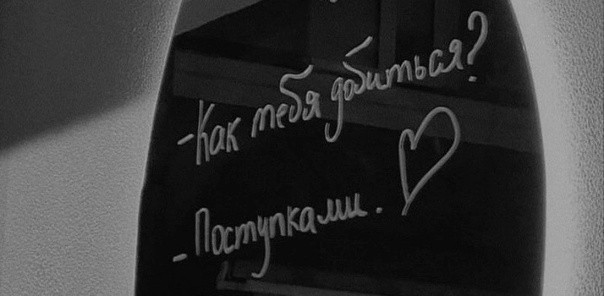 -Как тебя добиться?
-Поступками.